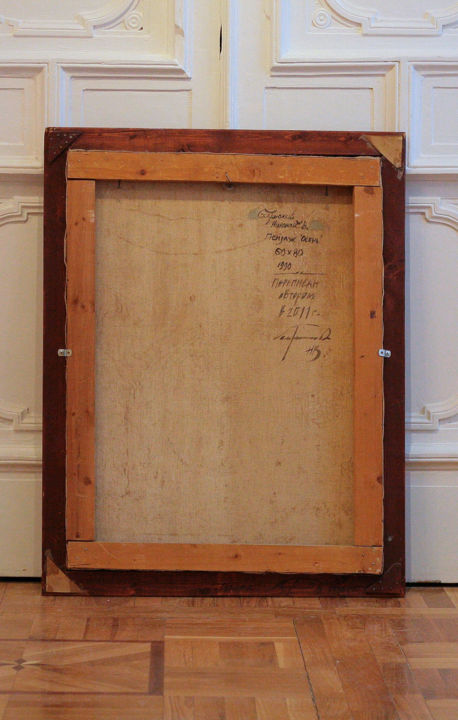 Николай В.
Пейзаж "Осень"
60 x 80
1990
Переписан
автором
в 2011 г.